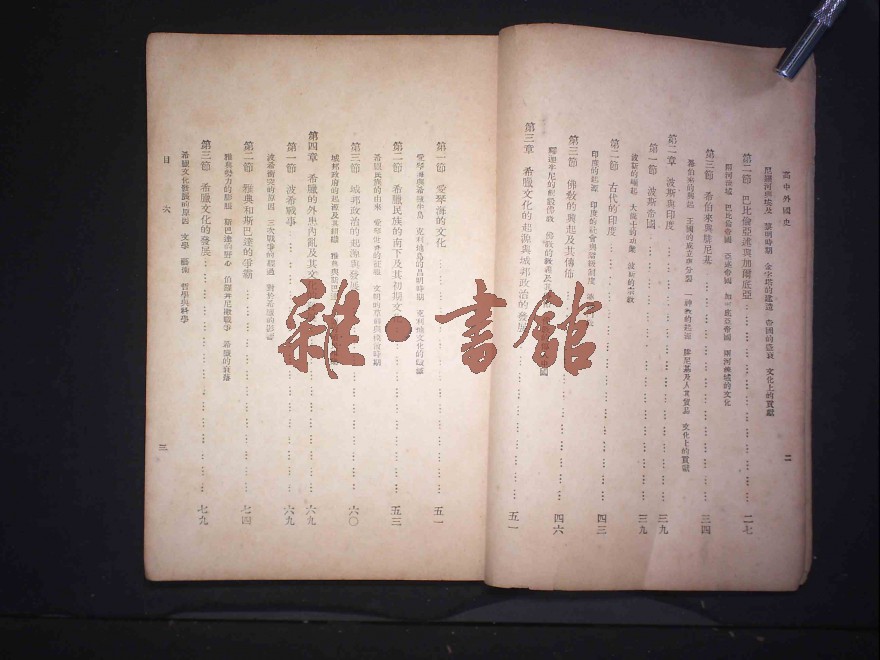 高中外國史
二
尼羅河與埃及 黎明時期 金字塔的建造 帝國的盛衰 文化上的貢獻
第二節 巴比倫亞述與加爾底亞 二七
兩河流域 巴比倫帝國 亞述帝國 加爾底亞帝國 兩河流域的文化
第三節 希伯來與腓尼基 三四
希伯來的興起 王國的成立與分裂 一神教的起源 腓尼基及人其貿易 文化上的貢獻
第二章 波斯與印度 三九
第一節 波斯帝國 三九
波斯的崛起 大流士的功業 波斯的宗教
第二節 古代的印度 四三
印度的起源 印度的社會與階級制度
第三節 佛教的興起及其傳佈 四六
釋迦牟尼的創設佛教 佛教的教義及其
第三章 希臘文化的起源與城邦政治的發展 五一
第一節 愛琴海的文化 五一
愛琴海與希臘半島 克利特島的昌明時期 克利特文化的
第二節 希臘民族的南下及其初期文 五三
希臘民族的由來 愛琴世界的征服 文明的草創與模倣時期
第三節 城邦政治的起源與發展 六〇
城邦政府的起源及其組織 雅典與斯巴達
第四章 希臘的外患內亂及其文 六九
第一節 波希戰爭 六九
波希衝突的原因 三次戰爭的經過 對於希臘的影響
第二節 雅典和斯巴達的爭霸 七四
雅典勢力的膨脹 斯巴達的野心 伯羅奔尼撒戰爭 希臘的衰落
第三節 希臘文化的發展 七九
希臘文化發展的原因 文學 藝術 哲學與科學
目 次
三
雜·書館